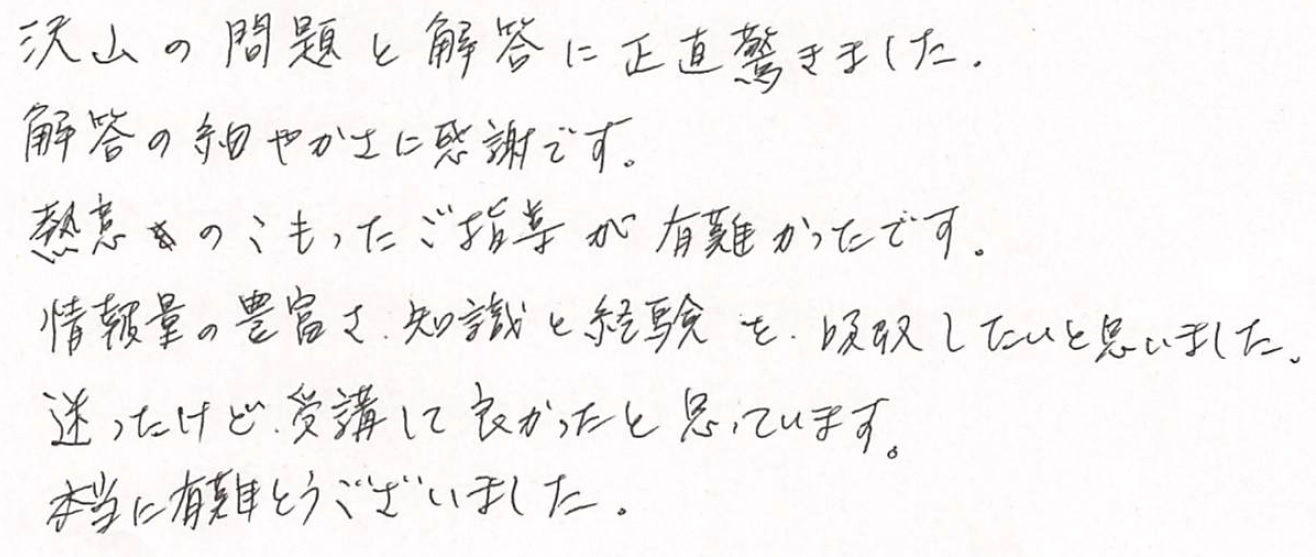 沢山の問題と解答に正直驚きました.
解答の細やかさに感謝です。
熱意のこもったご指導が有難かったです。
情報量の豊富さ.知識と経験を.吸収したいと思いました。
迷ったけど.受講して良かったと思っています。
本当に有難とうございました。